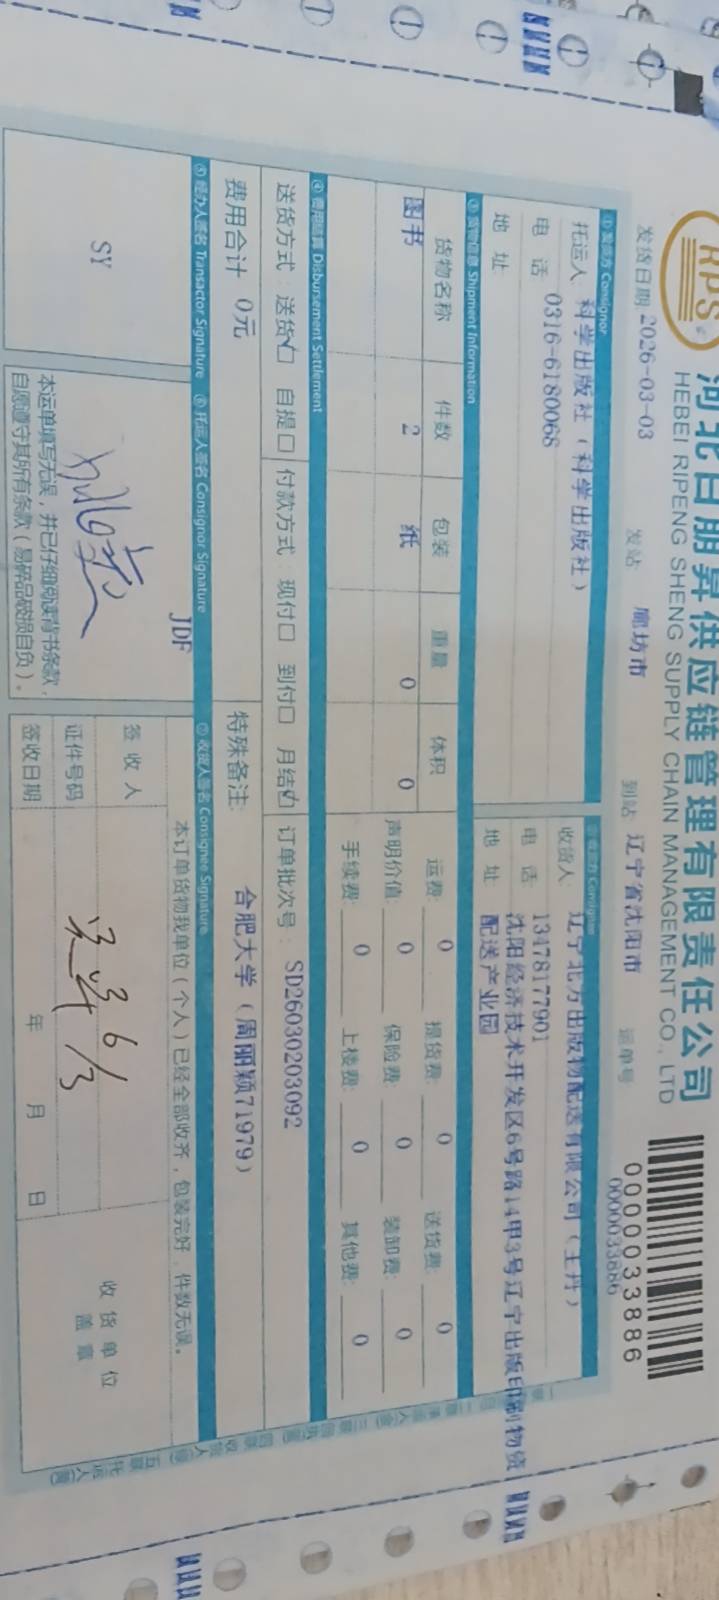 RPS
河北日朋昇供应链管理有限责任公司
HEBEI RIPENG SHENG SUPPLY CHAIN MANAGEMENT CO., LTD
0000033886
发货日期 2026-03-03 发站 廊坊市 到站 辽宁省沈阳市 运单号 0000033886
① 发货方 Consignor
托运人 科学出版社(科学出版社)
电 话 0316-6180068
地 址
收货方 Consignee
收货人 辽宁北方出版物配送有限公司(王丹)
电 话 13478177901
地 址 沈阳经济技术开发区6号路14甲3号辽宁出版印刷物资
配送产业园
③ 货物信息 Shipment Information
货物名称 件数 包装 重量 体积
图书 2 纸 0 0
运费: 0 提货费: 0 送货费: 0
声明价值: 0 保险费: 0 装卸费: 0
手续费: 0 上楼费: 0 其他费: 0
④ 费用结算 Disbursement Settlement
送货方式: 送货☑ 自提□ 付款方式: 现付□ 到付□ 月结☑ 订单批次号: SD26030203092
费用合计 0元 特殊备注: 合肥大学(周丽颖71979)
⑤ 经办人签名 Transactor Signature
SY
⑥ 托运人签名 Consignor Signature
JDF
本运单填写无误,并已仔细阅读背书条款,
自愿遵守其所有条款(易碎品破损自负)。
⑦ 收货人签名 Consignee Signature
本订单货物我单位(个人)已经全部收齐,包装完好,件数无误。
签收人
证件号码
签收日期 年 月 日
6/3
收货单位
盖章